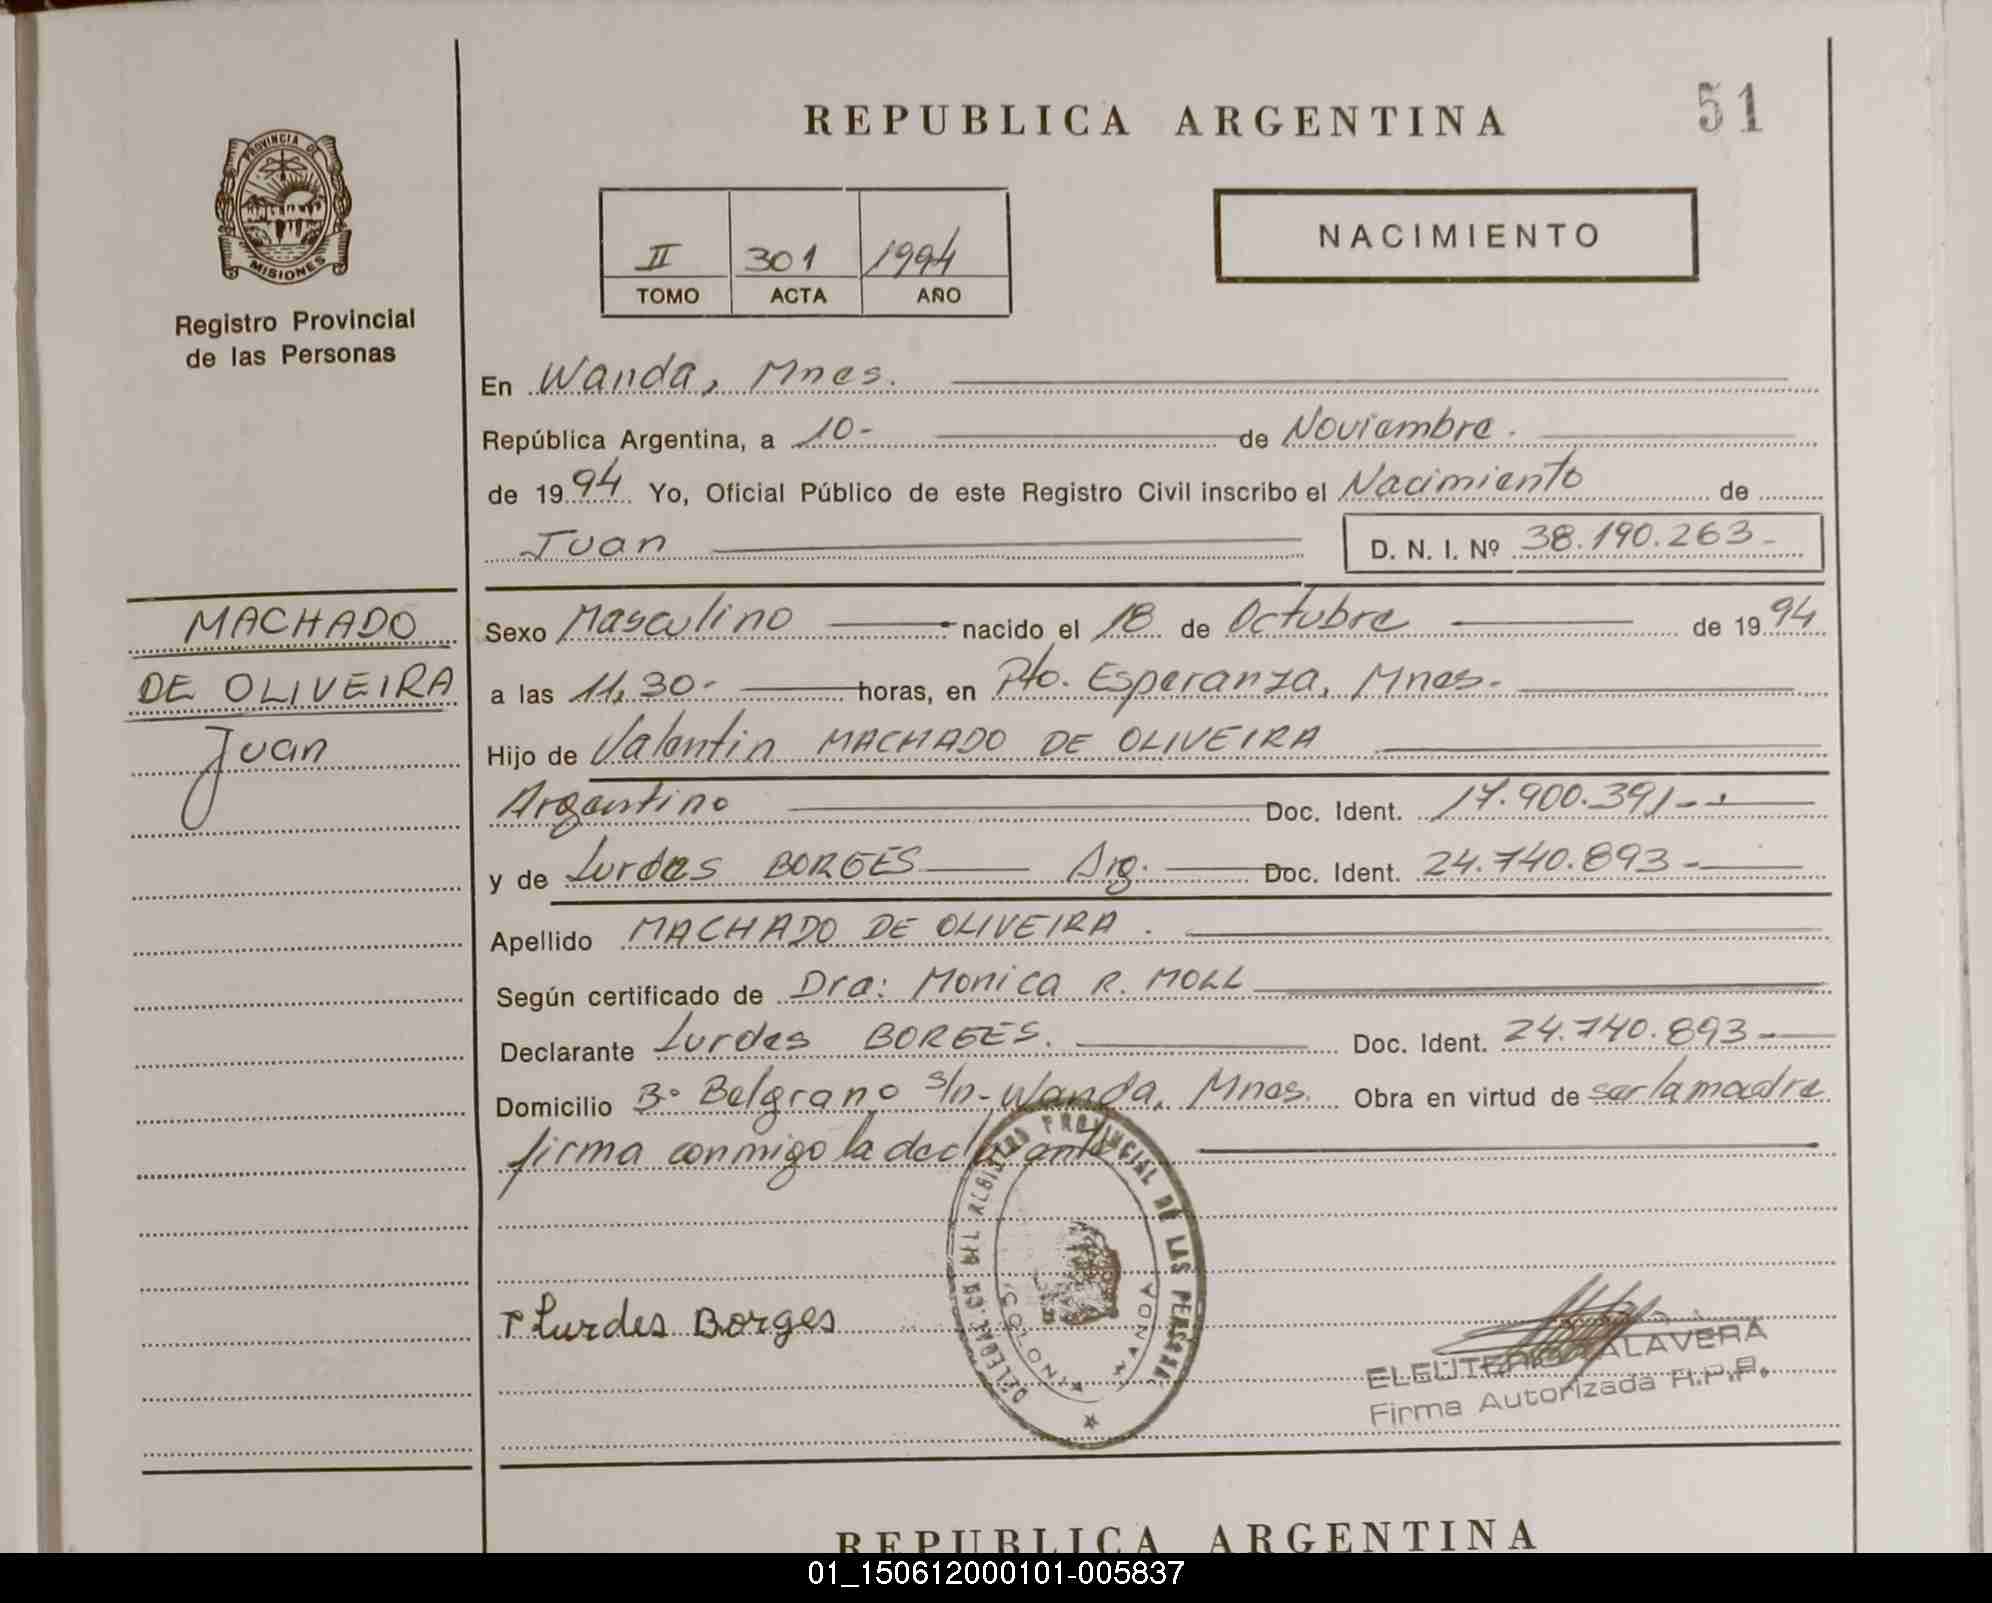 REPUBLICA ARGENTINA
51
PROVINCIA DE
MISIONES
Registro Provincial
de las Personas
II 301 1994
TOMO ACTA AÑO
NACIMIENTO
En Wanda, Mnes.
República Argentina, a 10- de Noviembre.
de 1994 Yo, Oficial Público de este Registro Civil inscribo el Nacimiento de
Juan D. N. I. Nº 38.190.263-
MACHADO
DE OLIVEIRA
Juan
Sexo Masculino nacido el 18 de Octubre de 1994
a las 11,30- horas, en Pto. Esperanza, Mnes.
Hijo de Valentin MACHADO DE OLIVEIRA
Argentino Doc. Ident. 17.900.391-
y de Lurdes BORGES Arg. Doc. Ident. 24.740.893-
Apellido MACHADO DE OLIVEIRA.
Según certificado de Dra: Monica R. MOLL
Declarante Lurdes BORGES. Doc. Ident. 24.740.893-
Domicilio Bº Belgrano s/n- Wanda, Mnes. Obra en virtud de ser la madre
firma conmigo la declarante
PROVINCIAL DE LAS PERSONAS
WANDA
Lurdes Borges
ELEUTERIO TALAVERA
Firma Autorizada R.P.P.
REPUBLICA ARGENTINA
01_150612000101-005837